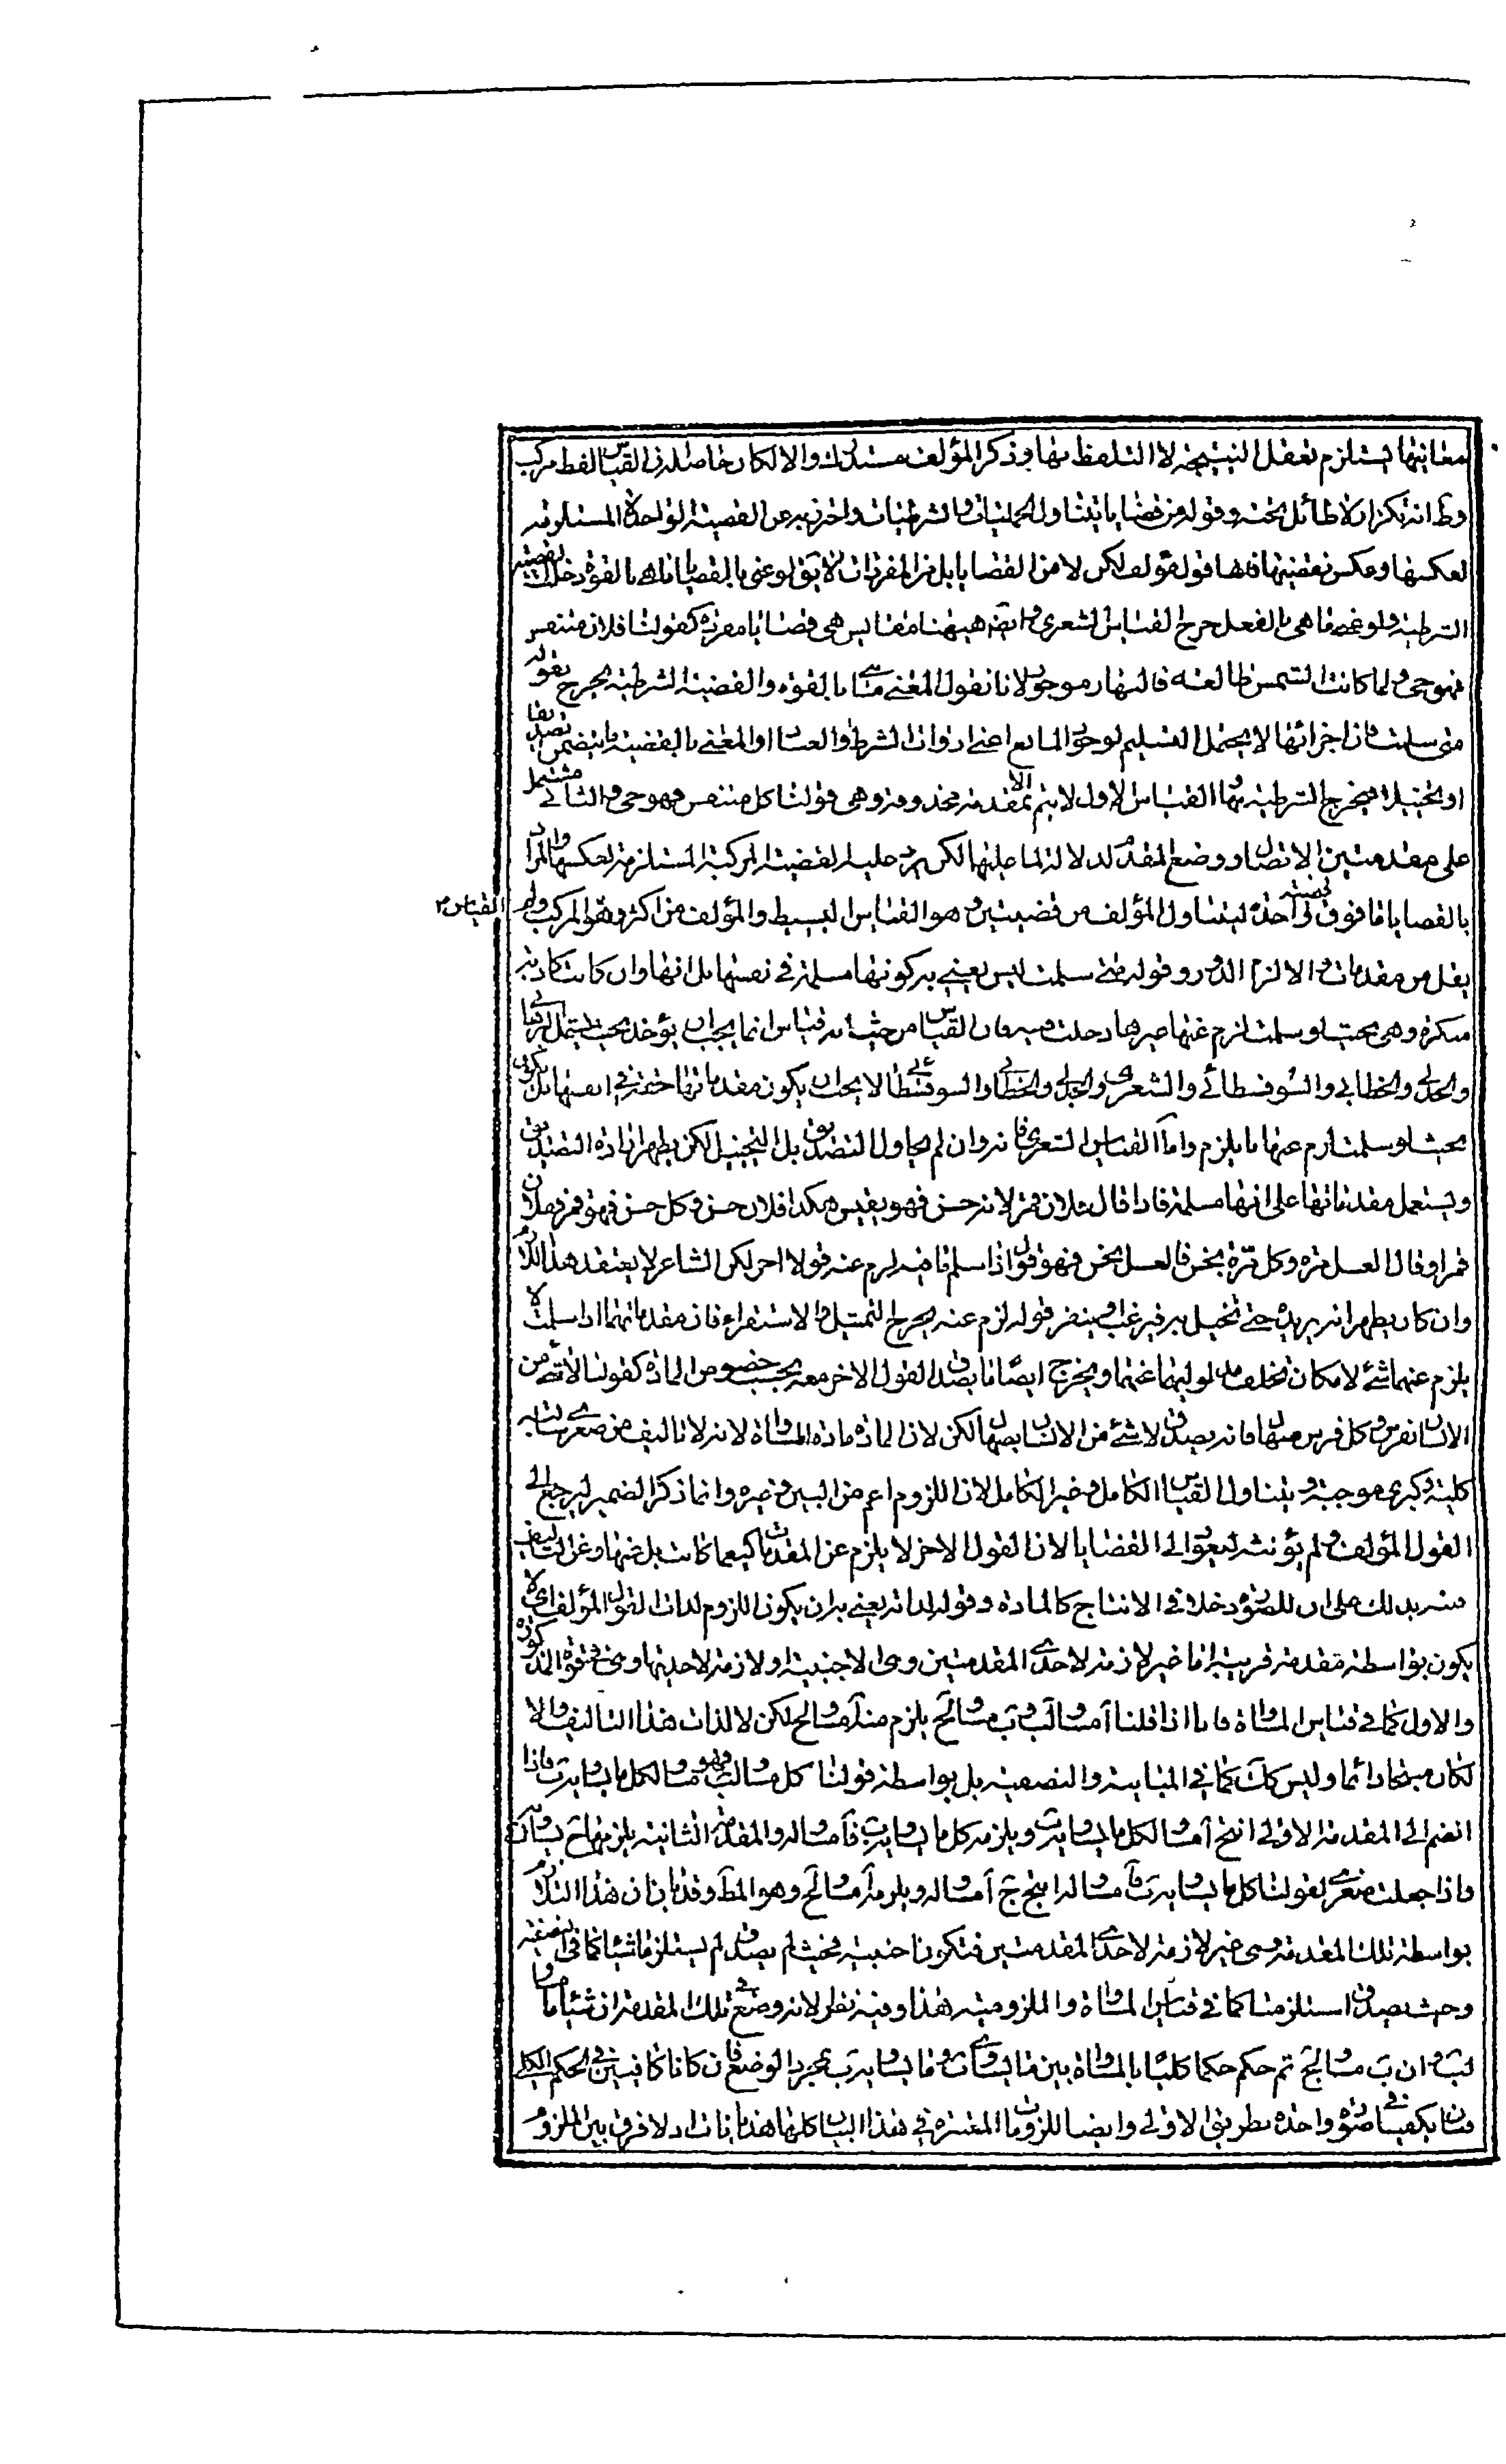 معانيها يستلزم تعقل النتيجة لا التلفظ بها وذكر المؤلف مستدرك والا لكان حاصله ان القياس لفظ مركب
وظ انه تكرار لا طائل تحته وقوله من قضايا يتناول الحمليات والشرطيات واحترز به عن القضية الواحدة المستلزمة
لعكسها وعكس نقيضها فانها قول مؤلف لكن لا من القضايا بل من المفردات لا يق لو عنى بالقضايا ما هى بالقوة دخلت القضية
الشرطية ولو عنى ما هى بالفعل خرج القياس الشعرى وايضا ههنا مقاييس هى قضايا مفردة كقولنا فلان متنفس
فهو حى ولما كانت الشمس طالعة فالنهار موجود لانا نقول المعنى ما بالقوة والقضية الشرطية يخرج بقوله
متى سلمت فان اجزائها لا يحتمل التسليم لوجود المانع اعنى ادوات الشرط والعناد او المعنى بالقضية ما يتضمن تصديقا
او تخييلا فيخرج الشرطية بها القياس الاول لا يتم الا بمقدمة محذوفة وهى قولنا كل متنفس فهو حى والثانى مشتمل
على مقدمتين الاتصال ووضع المقدم لدلالة لما عليها لكن يرد عليه القضية المركبة المستلزمة لعكسها والمراد
بالقضايا ما فوق قضية واحدة ليتناول المؤلف من قضيتين وهو القياس البسيط والمؤلف من اكثر وهو القياس المركب ولم
يقل من مقدمات والا لزم الدور وقوله متى سلمت ليس يعنى به كونها مسلمة فى نفسها بل انها وان كانت كاذبة
منكرة وهى بحيث لو سلمت لزم عنها غيرها دخلت فيه فان القياس من حيث انه قياس انما يجب ان يؤخذ بحيث يشتمل البرهانى
والجدلى والخطابى والسوفسطائى والشعرى والجدلى والخطابى والسوفسطائى لا يجب ان يكون مقدماتها حقة فى انفسها بل يكون
بحيث لو سلمت لزم عنها ما يلزم واما القياس الشعرى فانه وان لم يحاول التصديق بل التخييل لكن يظهر ارادة التصديق
ويستعمل مقدماتها على انها مسلمة فاذا قال فلان قمر لانه حسن فهو يقيس هكذا فلان حسن وكل حسن فهو قمر ففلان
قمر او قال العسل مرة وكل مرة نجس فالعسل نجس فهو قول اذا سلم ما فيه لزم عنه قولا اخر لكن الشاعر لا يعتقد هذا اللازم
وان كان يظهر انه يريده حتى تخيل به فيرغب او ينفر قوله لزم عنه يخرج التمثيل والاستقراء فان مقدماتهما اذا سلمت لا
يلزم عنهما شئ لامكان تخلف مدلوليهما عنهما ويخرج ايضا ما يصدق القول الاخر معه بحسب خصوص المادة كقولنا لا شئ من
الانسان بفرس وكل فرس صهال فانه يصدق لا شئ من الانسان بصهال لكن لا اذا المادة مادة المساواة لانه لا تاليف من صغرى سالبة
كلية وكبرى موجبة ويتناول القياس الكامل وغير الكامل لان اللزوم اعم من البين وغيره وانما ذكر الضمير ليرجع الى
القول المؤلف ولم يؤنثه ليعود الى القضايا لان القول الاخر لا يلزم عن المقدمات كيفما كانت بل عنها وعن التاليف
منبه بذلك على ان للصورة دخلا فى الانتاج كالمادة وقوله لذاته يعنى به ان يكون اللزوم لذات القول المؤلف اى لا
يكون بواسطة مقدمة غريبة اما غير لازمة لاحدى المقدمتين وهى الاجنبية او لازمة لاحديهما وهى فى قوة المذكورة
والاول كما فى قياس المساواة فانا اذا قلنا آ مساو لب و ب مساو لج يلزم منه آ مساو لج لكن لا لذات هذا التاليف والا
لكان منتجا دائما وليس كك كما فى المباينة والنصفية بل بواسطة قولنا كل مساو لب فهو مساو لكل ما يساويه ب فاذا
انضم الى المقدمة الاولى انتج آ مساو لكل ما يساويه ب ويلزمه كل ما يساويه ب فآ مساو له والمقدمة الثانية يلزمها ج يساويه ب
واذا جعلت صغرى لقولنا كل ما يساويه ب فآ مساو له انتج ج آ مساو له ويلزمه آ مساو لج وهو المط وقد بان ان هذا اللازم
بواسطة تلك المقدمة وهى غير لازمة لاحدى المقدمتين فتكون اجنبية فحيث لم يصدق لم يستلزم شيئا كما فى النصفية
وحيث يصدق استلزمت كما فى قياس المساواة والملزومية هذا وفيه نظر لانه وضع فى تلك المقدمة ان شيئا مساو
لب وان ب مساو لج ثم حكم حكما كليا بالمساواة بين ما يساوى ب وما يساويه ب بمجرد الوضع فان كانا كافيين فى الحكم الكلى
فبان يكفيا فى صورة واحدة بطريق الاولى وايضا اللزومات المعتبرة فى هذا البيان كلها هذيانات اذ لا فرق بين الملزوم